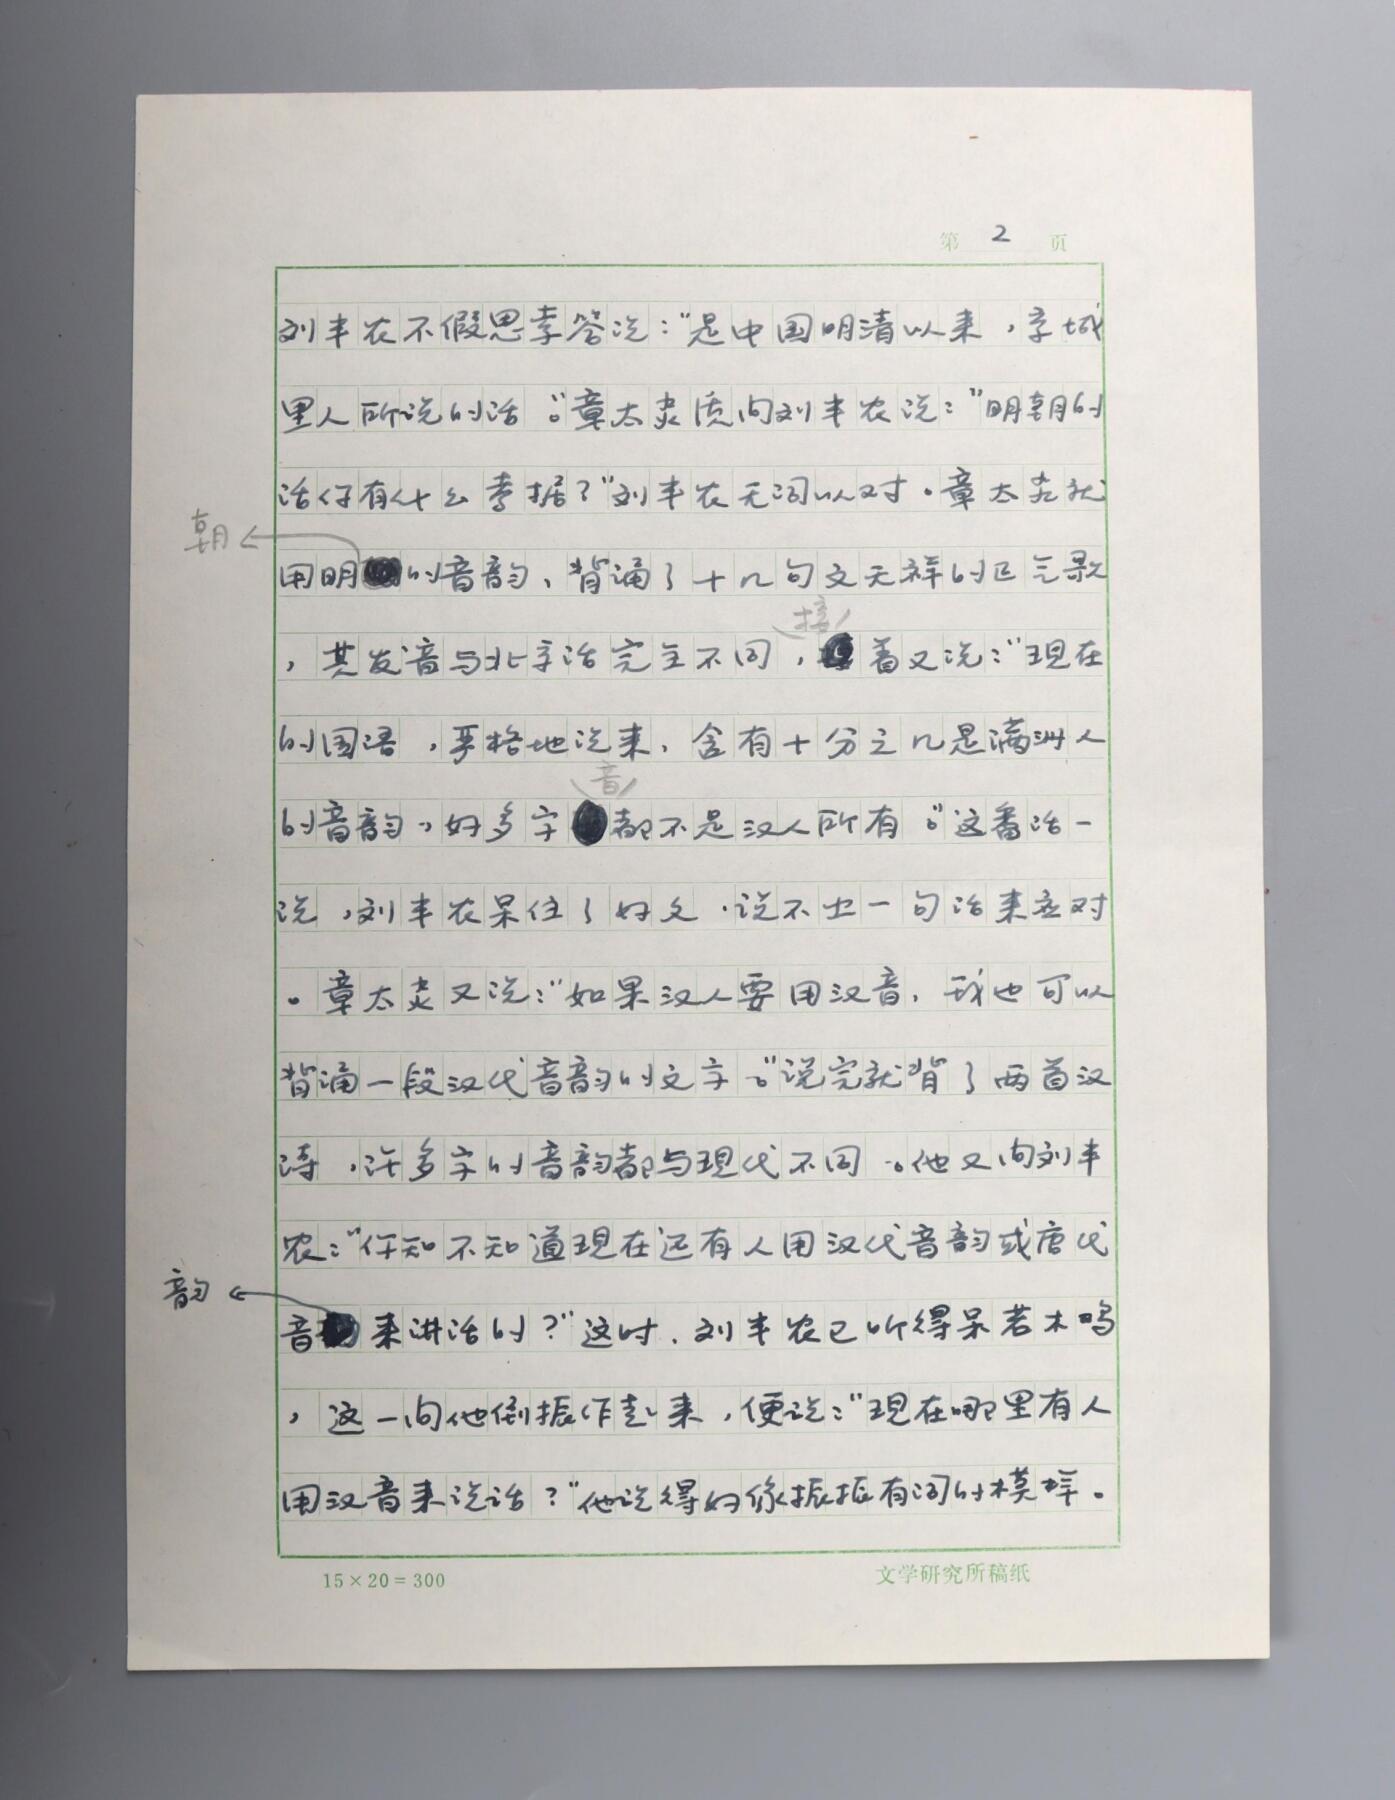 第 2 页
刘半农不假思索答说：“是中国明清以来，京城
里人所说的话。”章太炎质问刘半农说：“明朝的
话你有什么考据？”刘半农无词以对。章太炎就
朝
用明的音韵、背诵了十几句文天祥的正气歌
接
，其发音与北京话完全不同，着又说：“现在
的国语，严格地说来，含有十分之几是满洲人
音
的音韵，好多字都不是汉人所有。”这番话一
说，刘半农呆住了好久，说不出一句话来应对
。章太炎又说：“如果汉人要用汉音，我也可以
背诵一段汉代音韵的文字。”说完就背了两首汉
诗，许多字的音韵都与现代不同。他又问刘半
农：“你知不知道现在还有人用汉代音韵或唐代
韵
音来讲话的？”这时，刘半农已听得呆若木鸡
，这一问他倒振作起来，便说：“现在哪里有人
用汉音来说话？”他说得好像振振有词的模样。
15×20=300
文学研究所稿纸